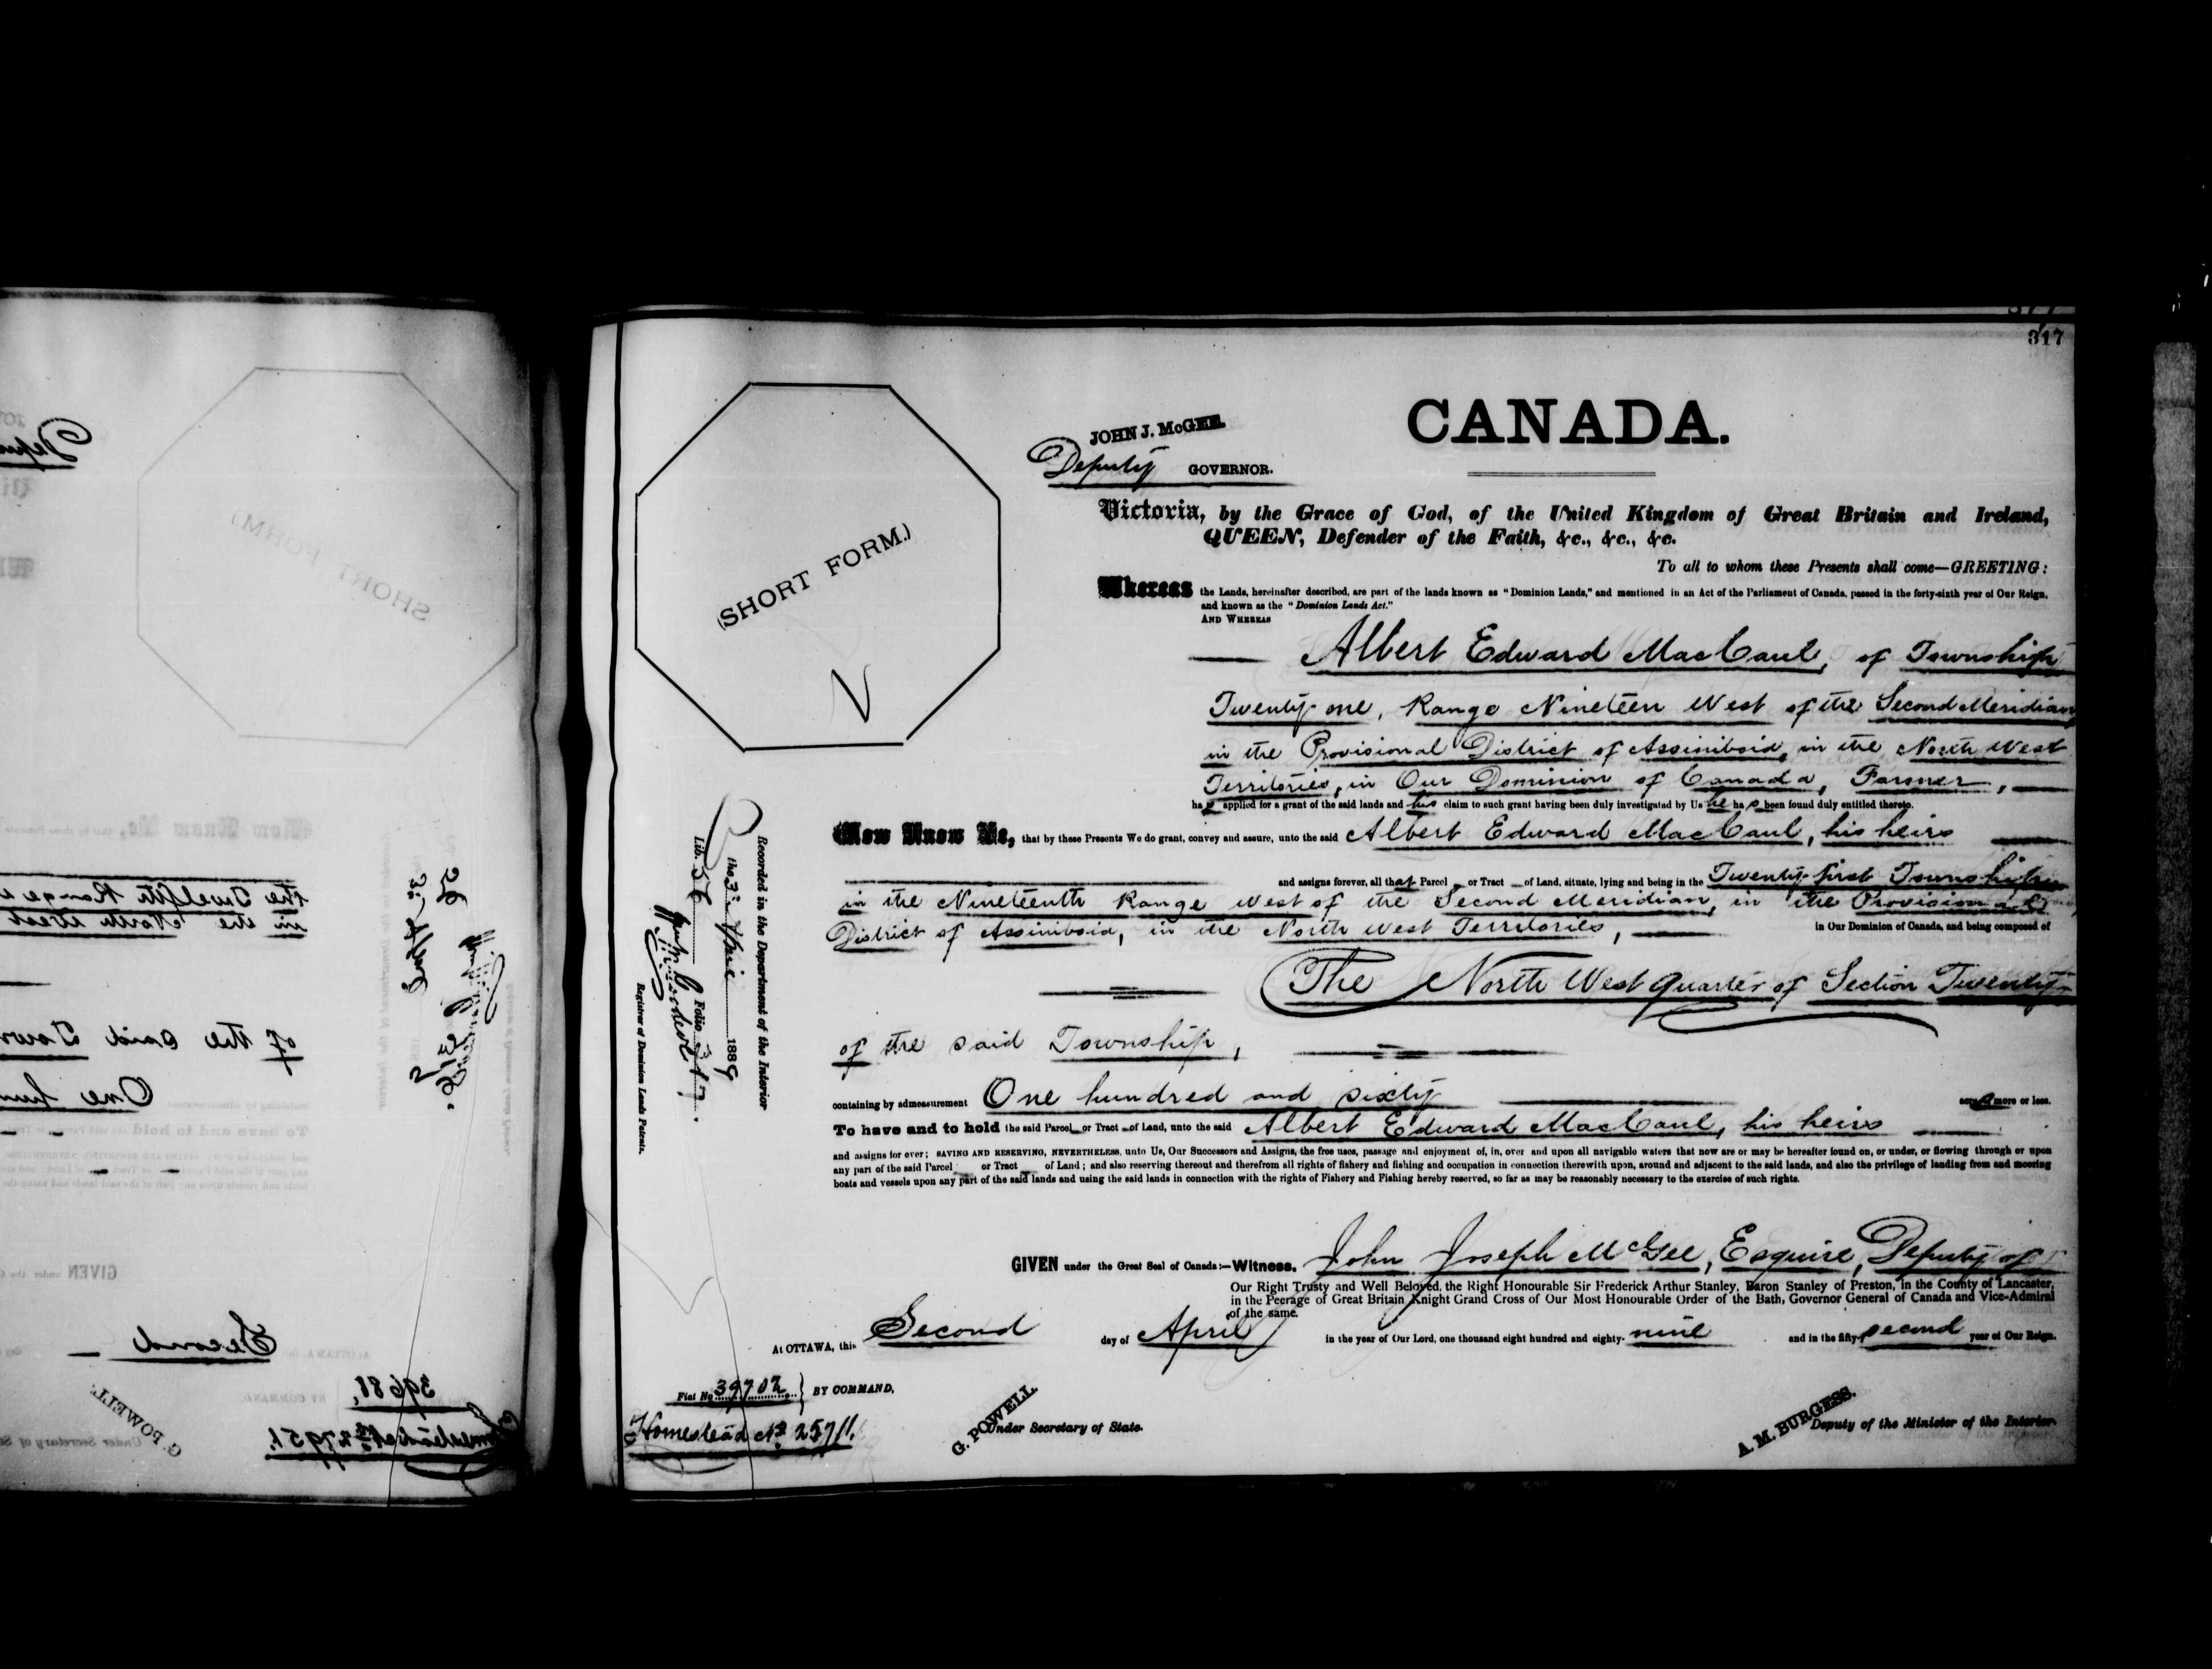 317
CANADA.
JOHN J. McGEE.
Deputy GOVERNOR.
(SHORT FORM.)
Victoria, by the Grace of God, of the United Kingdom of Great Britain and Ireland,
QUEEN, Defender of the Faith, &c., &c., &c.
To all to whom these Presents shall come—GREETING:
Whereas the Lands, hereinafter described, are part of the lands known as "Dominion Lands," and mentioned in an Act of the Parliament of Canada, passed in the forty-sixth year of Our Reign,
and known as the "Dominion Lands Act."
AND WHEREAS
Albert Edward MacCaul, of Township
Twenty-one, Range Nineteen West of the Second Meridian,
in the Provisional District of Assiniboia, in the North West
Territories, in Our Dominion of Canada, Farmer,
has applied for a grant of the said lands and his claim to such grant having been duly investigated by Us he has been found duly entitled thereto.
Now Know Ye, that by these Presents We do grant, convey and assure, unto the said Albert Edward MacCaul, his heirs
and assigns forever, all that Parcel or Tract of Land, situate, lying and being in the Twenty-first Township
in the Nineteenth Range West of the Second Meridian, in the Provisional
District of Assiniboia, in the North West Territories, in Our Dominion of Canada, and being composed of
The North West quarter of Section Twenty
of the said Township,
containing by admeasurement One hundred and sixty acres more or less.
To have and to hold the said Parcel or Tract of Land, unto the said Albert Edward MacCaul, his heirs
and assigns for ever; SAVING AND RESERVING, NEVERTHELESS, unto Us, Our Successors and Assigns, the free uses, passage and enjoyment of, in, over and upon all navigable waters that now are or may be hereafter found on, or under, or flowing through or upon
any part of the said Parcel or Tract of Land; and also reserving thereout and therefrom all rights of fishery and fishing and occupation in connection therewith upon, around and adjacent to the said lands, and also the privilege of landing from and mooring
boats and vessels upon any part of the said lands and using the said lands in connection with the rights of Fishery and Fishing hereby reserved, so far as may be reasonably necessary to the exercise of such rights.
GIVEN under the Great Seal of Canada:—Witness, John Joseph McGee, Esquire, Deputy of
Our Right Trusty and Well Beloved, the Right Honourable Sir Frederick Arthur Stanley, Baron Stanley of Preston, in the County of Lancaster,
in the Peerage of Great Britain Knight Grand Cross of Our Most Honourable Order of the Bath, Governor General of Canada and Vice-Admiral
of the same.
At OTTAWA, this Second day of April in the year of Our Lord, one thousand eight hundred and eighty-nine and in the fifty-second year of Our Reign.
Fiat No 39702 } BY COMMAND,
Homestead No 25711.
G. POWELL.
Under Secretary of State.
A. M. BURGESS.
Deputy of the Minister of the Interior.
Recorded in the Department of the Interior
the 3rd April 1889
Lib. 56 Folio 317.
Registrar of Dominion Lands Patents.
(SHORT FORM.)
the Twelfth Range
in the North West
of the said
One
GIVEN
Second
39681,
Homestead No 27951.
G. POWELL.